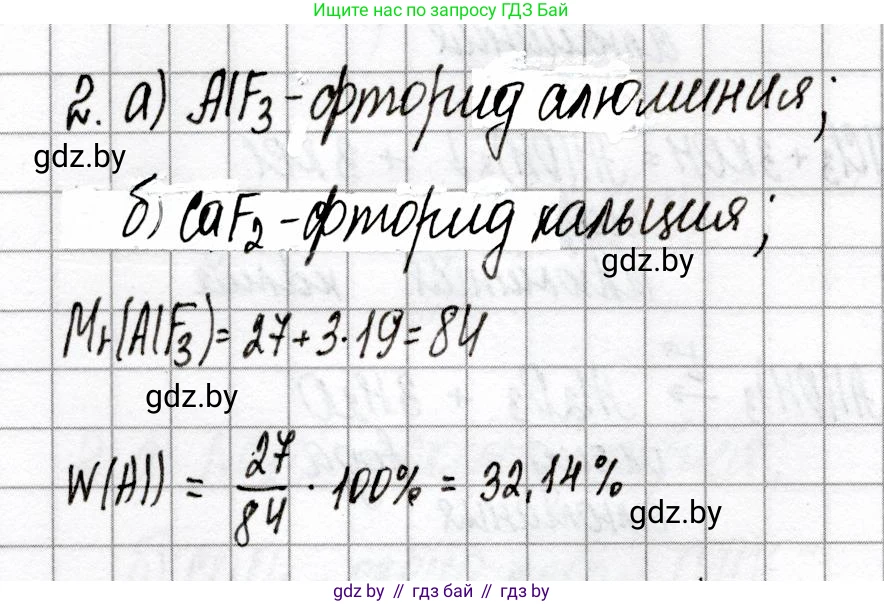 Ищите нас по запросу ГДЗ Бай
2. а) AlF3 - фторид алюминия;
gdz.by
б) CaF2 - фторид кальция;
gdz.by
Mr(AlF3) = 27 + 3·19 = 84
gdz.by
W(Al) = 27/84 · 100% = 32,14%
gdz.by
gdz by // гдз бай // gdz by